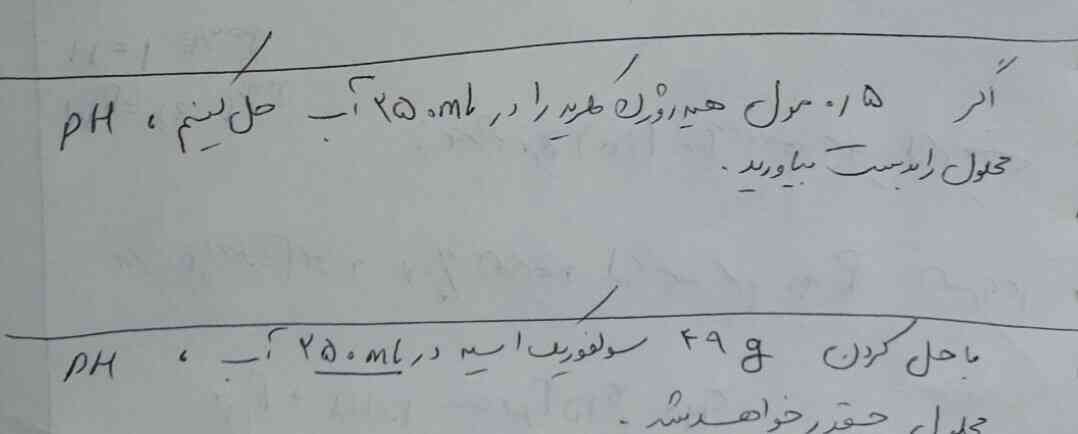 اگر ۰/۵ مول هیدروژن کلرید را در ۲۵۰mL آب حل کنیم ، pH
محلول را بدست بیاورید .
با حل کردن ۴۹ g سولفوریک اسید در ۲۵۰mL آب ، pH
محلول چقدر خواهد شد .